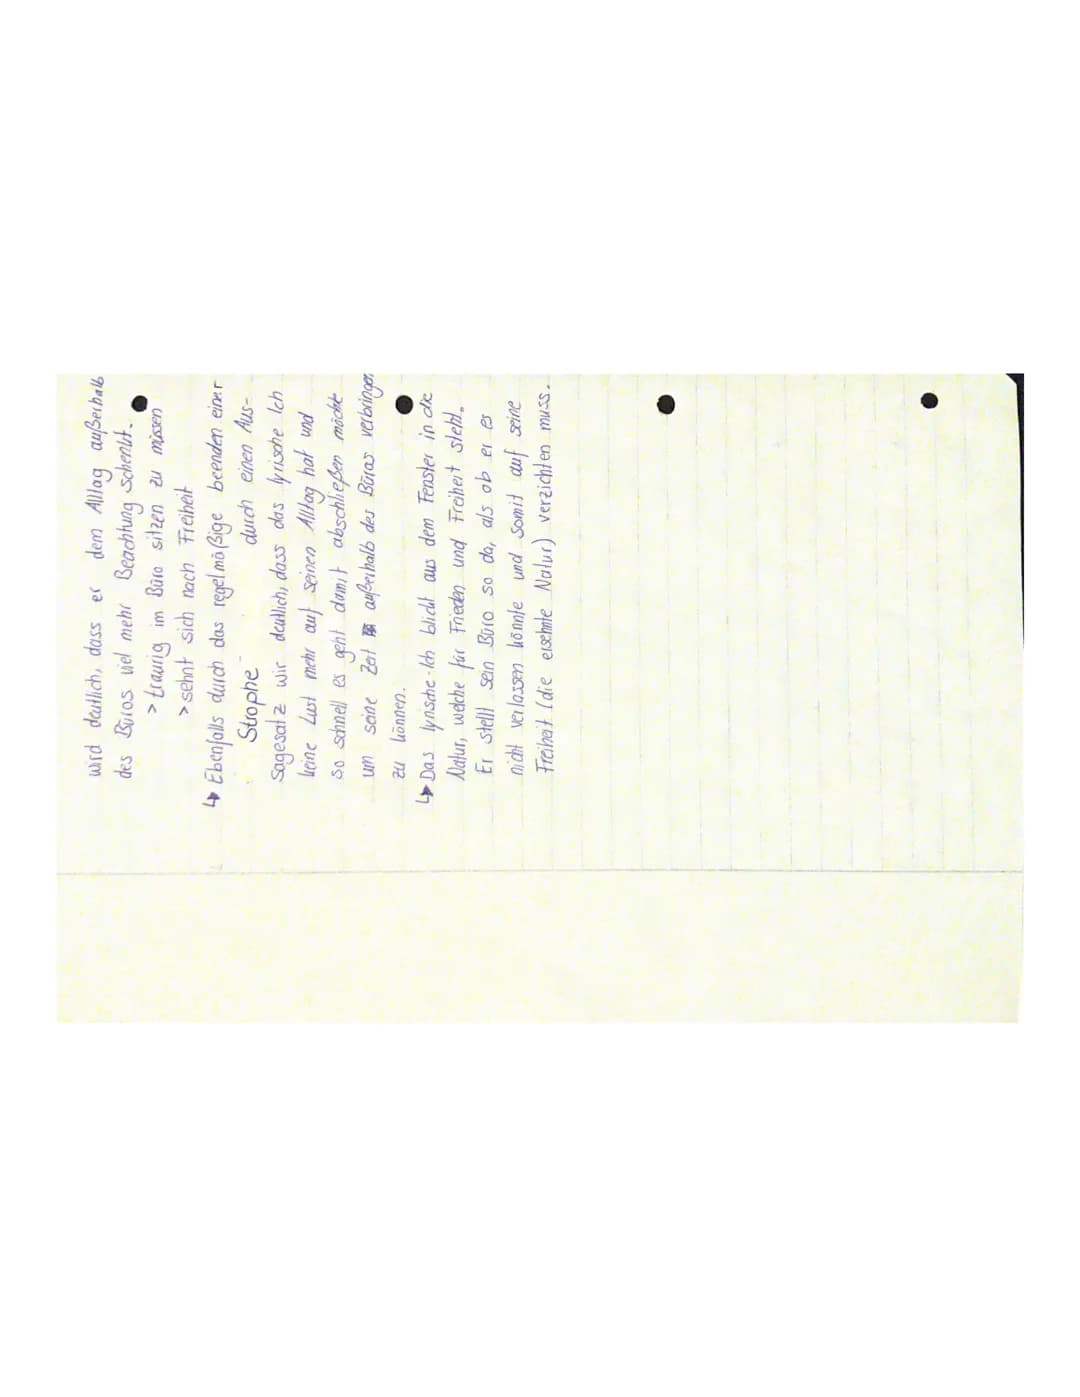 wird deutlich, dass er dem Alltag außerhalb
des Büros viel mehr Beachtung schenkt.
> traurig im Büro sitzen zu müssen
> sehnt sich nach Freiheit
↳ Ebenfalls durch das regelmäßige beenden einer
Strophe durch einen Aus-
sagesatz wir deutlich, dass das lyrische Ich
keine Lust mehr auf seinen Alltag hat und
so schnell es geht damit abschließen möchte
um seine Zeit außerhalb des Büros verbringen
zu können.
↳ Das lyrische-Ich blickt aus dem Fenster in die
Natur, welche für Frieden und Freiheit steht.
Er stellt sein Büro so da, als ob er es
nicht verlassen könnte und somit auf seine
Freiheit (die ersehnte Natur) verzichten muss.